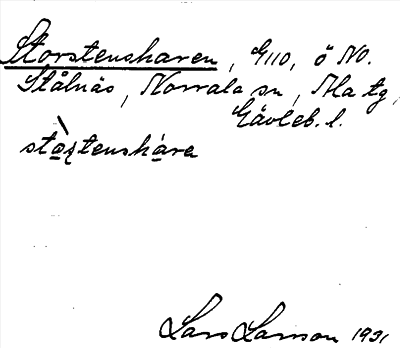 Storstensharen, G110, ö NO.
Stålnäs, Norrala sn, Ala tg,
Gävleb. l.
stòștenshara
Lars Larsson 1931